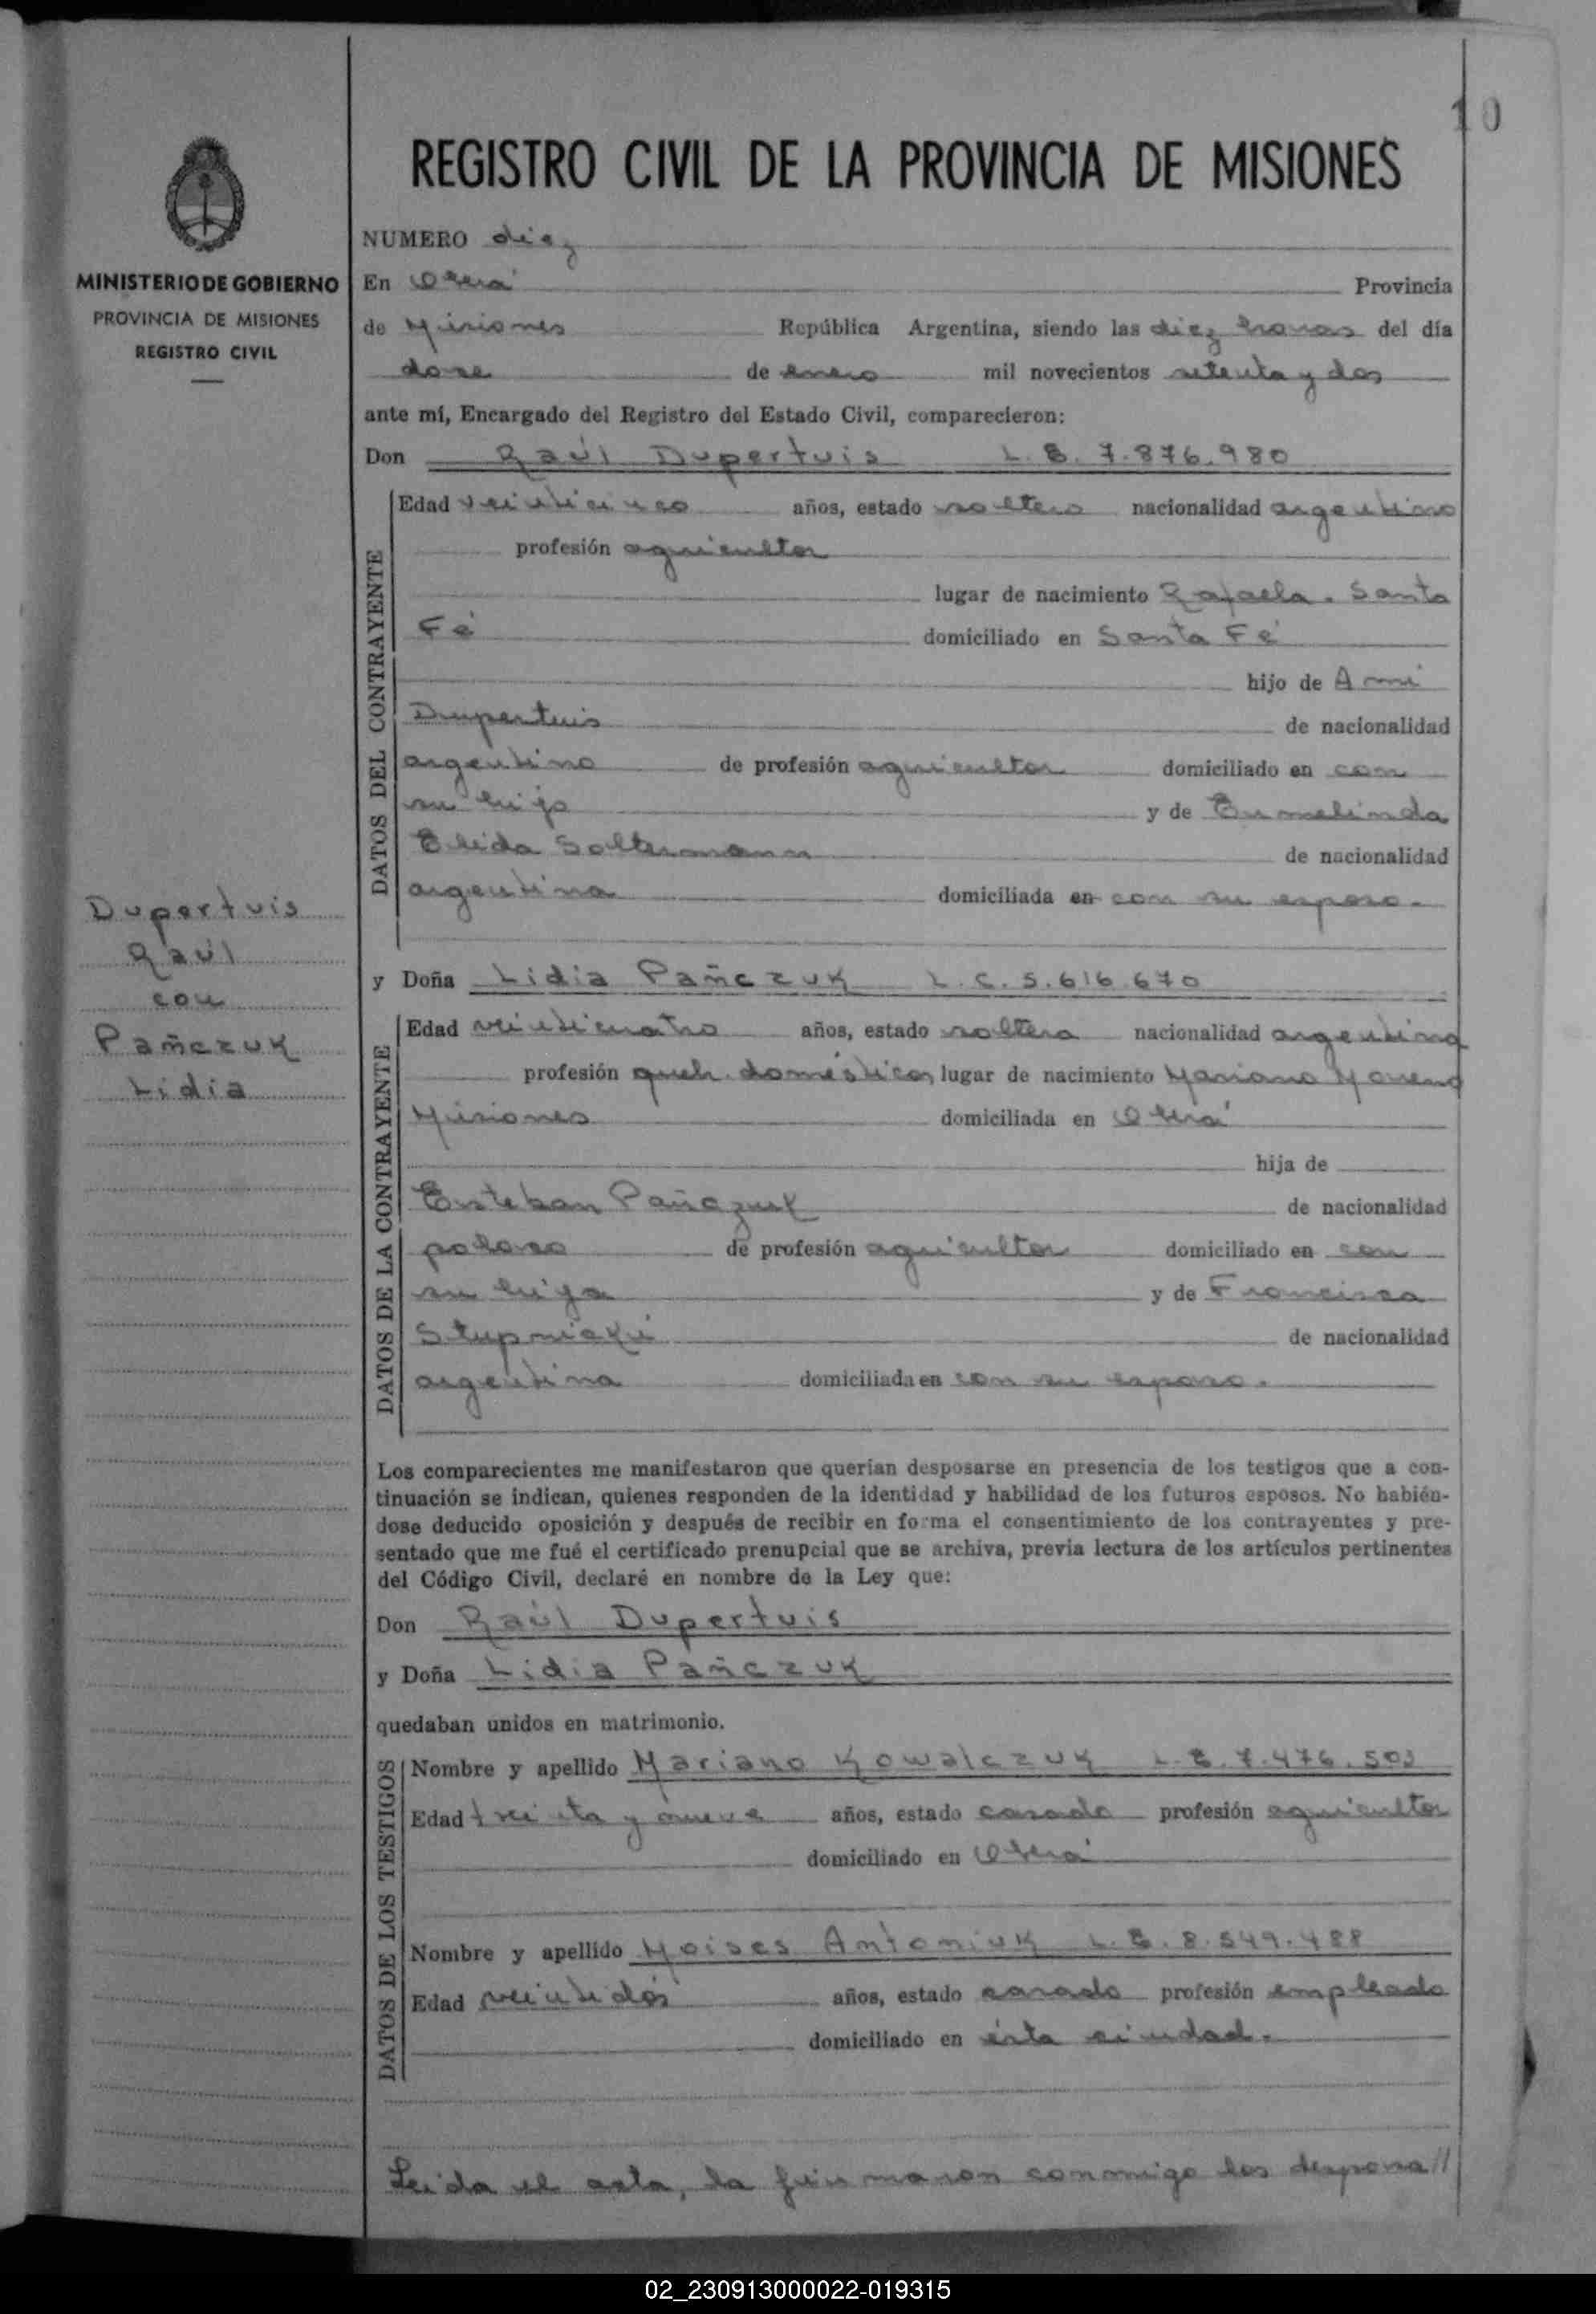 10
REGISTRO CIVIL DE LA PROVINCIA DE MISIONES
MINISTERIO DE GOBIERNO
PROVINCIA DE MISIONES
REGISTRO CIVIL
NUMERO diez
En Oberá Provincia
de Misiones República Argentina, siendo las diez horas del día
doce de enero mil novecientos setenta y dos
ante mí, Encargado del Registro del Estado Civil, comparecieron:
Don Raúl Dupertuis L.E. 7.876.980
DATOS DEL CONTRAYENTE
Edad veinticinco años, estado soltero nacionalidad argentino
profesión agricultor
lugar de nacimiento Rafaela. Santa
Fé domiciliado en Santa Fé
hijo de Ami
Dupertuis de nacionalidad
argentino de profesión agricultor domiciliado en con
su hijo y de Ermelinda
Elida Soltermann de nacionalidad
argentina domiciliada en con su esposo.
Dupertuis
Raúl
con
Pañczuk
Lidia
y Doña Lidia Pañczuk L.C. 5.616.670
DATOS DE LA CONTRAYENTE
Edad veinticuatro años, estado soltera nacionalidad argentina
profesión queh. domésticos lugar de nacimiento Mariano Moreno
Misiones domiciliada en Oberá
hija de
Esteban Pañczuk de nacionalidad
polaco de profesión agricultor domiciliado en con
su hija y de Francisca
Stupnicki de nacionalidad
argentina domiciliada en con su esposo.
Los comparecientes me manifestaron que querían desposarse en presencia de los testigos que a con-
tinuación se indican, quienes responden de la identidad y habilidad de los futuros esposos. No habién-
dose deducido oposición y después de recibir en forma el consentimiento de los contrayentes y pre-
sentado que me fué el certificado prenupcial que se archiva, previa lectura de los artículos pertinentes
del Código Civil, declaré en nombre de la Ley que:
Don Raúl Dupertuis
y Doña Lidia Pañczuk
quedaban unidos en matrimonio.
DATOS DE LOS TESTIGOS
Nombre y apellido Mariano Kowalczuk L.E. 7.476.503
Edad treinta y nueve años, estado casado profesión agricultor
domiciliado en Oberá
Nombre y apellido Moises Antoniuk L.E. 8.549.488
Edad veintidós años, estado casado profesión empleado
domiciliado en ésta ciudad.
Leida el acta, la firmaron conmigo los desposa//
02_230913000022-019315